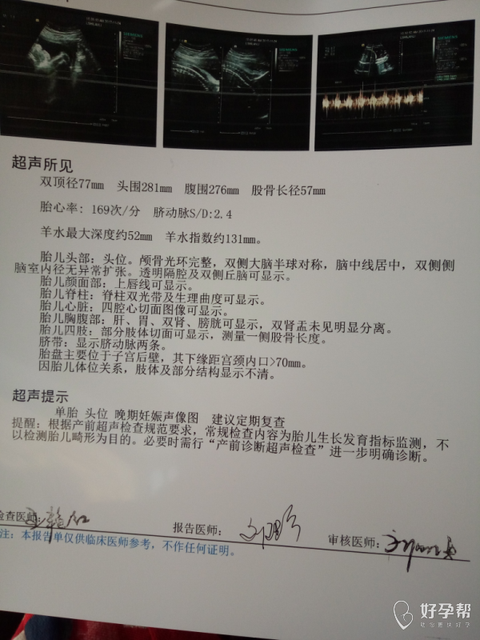 超声所见
双顶径77mm 头围281mm 腹围276mm 股骨长径57mm
胎心率: 169次/分 脐动脉S/D:2.4
羊水最大深度约52mm 羊水指数约131mm。
胎儿头部: 头位。颅骨光环完整, 双侧大脑半球对称, 脑中线居中, 双侧侧
脑室内径无异常扩张。透明隔腔及双侧丘脑可显示。
胎儿颜面部: 上唇线可显示。
胎儿脊柱: 脊柱双光带及生理曲度可显示。
胎儿心脏: 四腔心切面图像可显示。
胎儿胸腹部: 肝、胃、双肾、膀胱可显示, 双肾盂未见明显分离。
胎儿四肢: 部分肢体切面可显示, 测量一侧股骨长度。
脐带: 显示脐动脉两条。
胎盘主要位于子宫后壁, 其下缘距宫颈内口>70mm。
因胎儿体位关系, 肢体及部分结构显示不清。
超声提示
单胎 头位 晚期妊娠声像图 建议定期复查
提醒: 根据产前超声检查规范要求, 常规检查内容为胎儿生长发育指标监测, 不
以检测胎儿畸形为目的。必要时需行“产前诊断超声检查”进一步明确诊断。
检查医师:
报告医师:
审核医师:
注: 本报告单仅供临床医师参考, 不作任何证明。
好孕帮